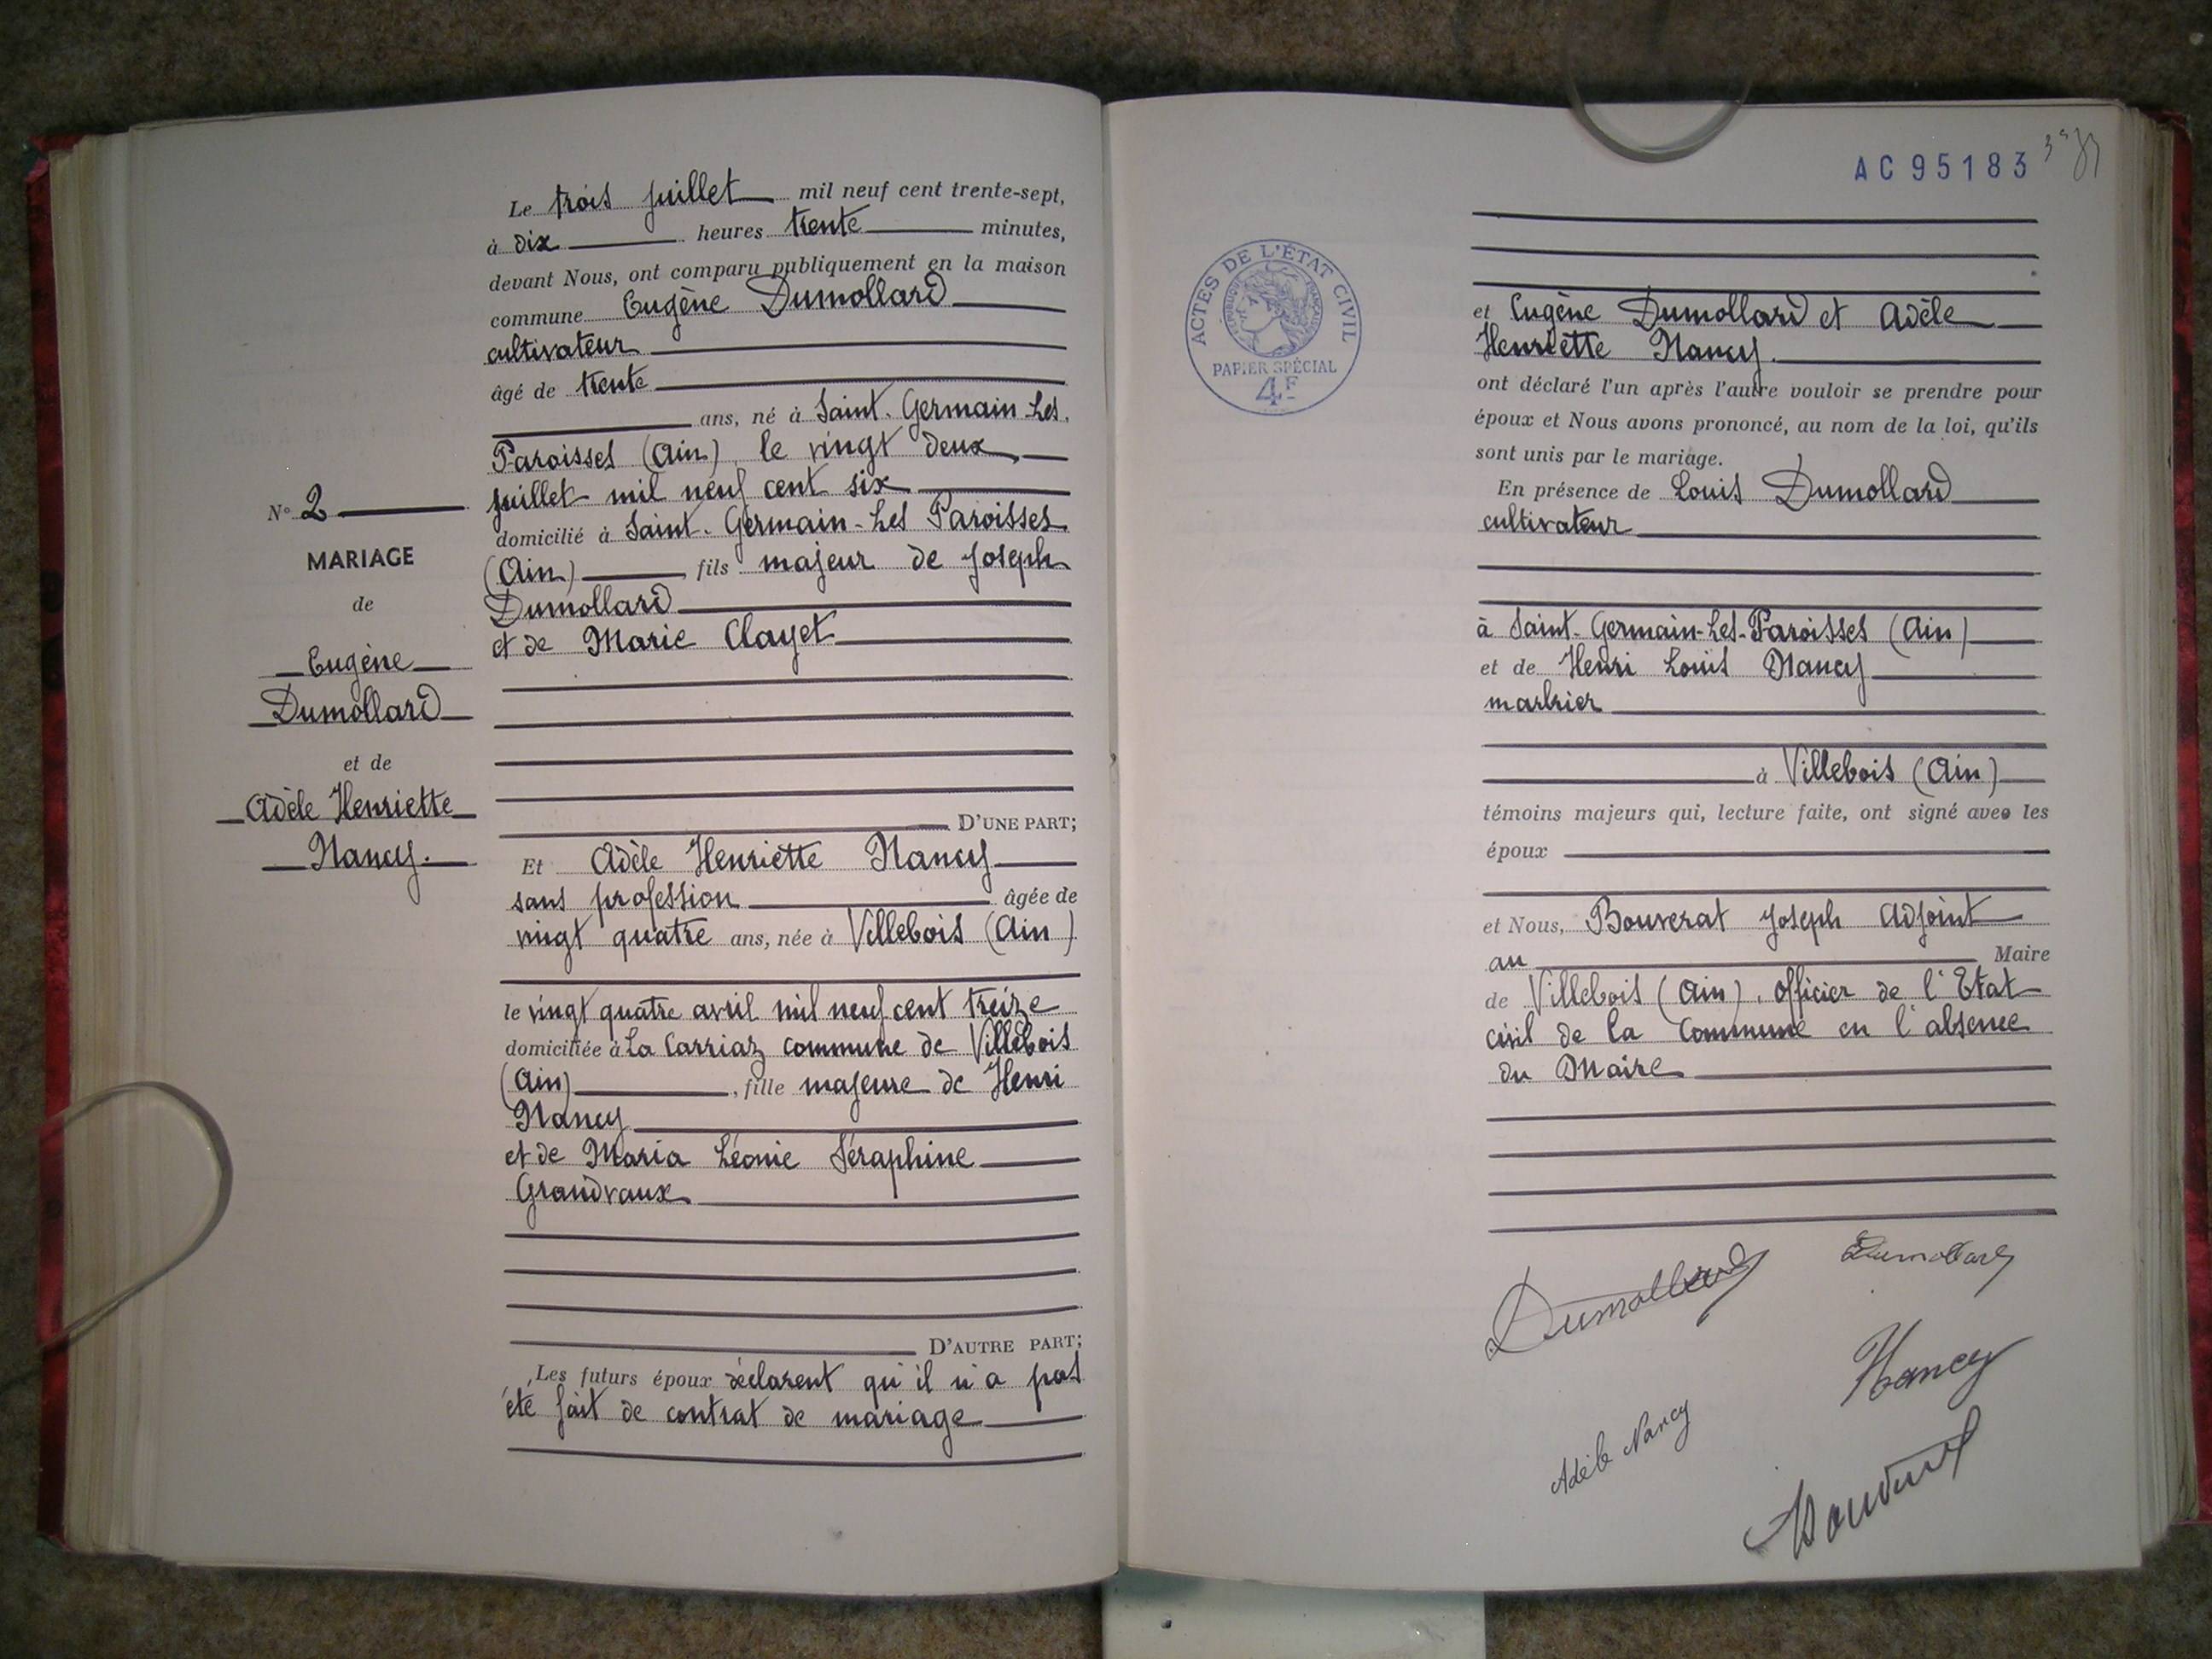 N° 2
MARIAGE
de
Eugène
Dumollard
et de
Adèle Henriette
Nancy.
Le trois juillet mil neuf cent trente-sept,
à dix heures trente minutes,
devant Nous, ont comparu publiquement en la maison
commune Eugène Dumollard
cultivateur
âgé de trente
ans, né à Saint-Germain-Les-
Paroisses (Ain), le vingt deux
juillet mil neuf cent six
domicilié à Saint-Germain-Les Paroisses
(Ain) fils majeur de Joseph
Dumollard
et de Marie Clayet
D'UNE PART;
Et Adèle Henriette Nancy
sans profession âgée de
vingt quatre ans, née à Villebois (Ain)
le vingt quatre avril mil neuf cent treize
domiciliée à La Carriaz commune de Villebois
(Ain), fille majeure de Henri
Nancy
et de Maria Léonie Séraphine
Grandvaux
D'AUTRE PART;
Les futurs époux déclarent qu'il n'a pas
été fait de contrat de mariage
AC 95183
ACTES DE L'ÉTAT CIVIL
RÉPUBLIQUE FRANÇAISE
PAPIER SPÉCIAL
4F
et Eugène Dumollard et Adèle
Henriette Nancy.
ont déclaré l'un après l'autre vouloir se prendre pour
époux et Nous avons prononcé, au nom de la loi, qu'ils
sont unis par le mariage.
En présence de Louis Dumollard
cultivateur
à Saint-Germain-Les-Paroisses (Ain)
et de Henri Louis Nancy
marbrier
à Villebois (Ain)
témoins majeurs qui, lecture faite, ont signé avec les
époux
et Nous, Bouverat Joseph Adjoint
au Maire
de Villebois (Ain), officier de l'Etat
civil de la Commune en l'absence
du Maire
Dumollard
Dumollard
Nancy
Adèle Nancy
Bouverat